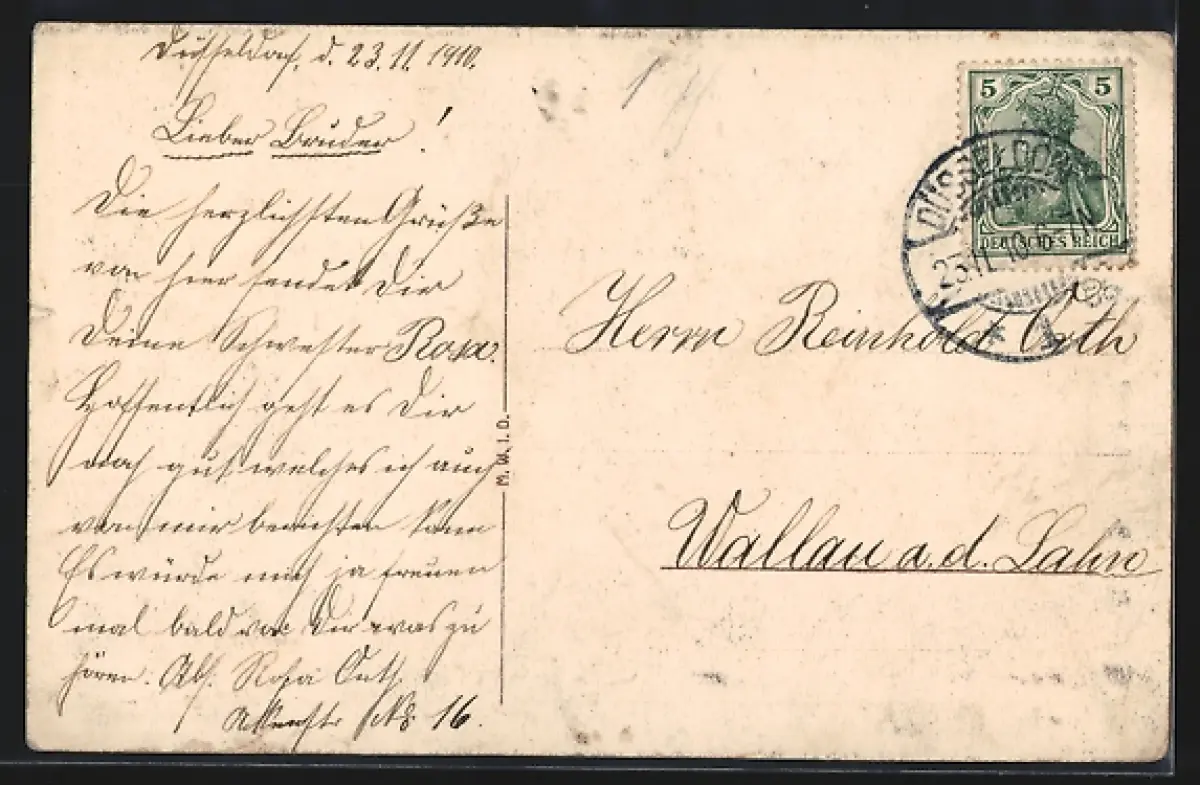 Düsseldorf, d. 23.11.1910.
Lieber Bruder!
Die herzlichsten Grüße
von hier sendet Dir
Deine Schwester Rosa.
Hoffentlich geht es Dir
noch gut welches ich auch
von mir berichten kann
Es würde mich ja freuen
mal bald von Dir was zu
hören. Abs. Rosa Orth
No 16.
M. W. I. D.
5 5
DEUTSCHES REICH
DÜSSELDORF
23.11.10
Herrn Reinhold Orth
Wallau a. d. Lahn